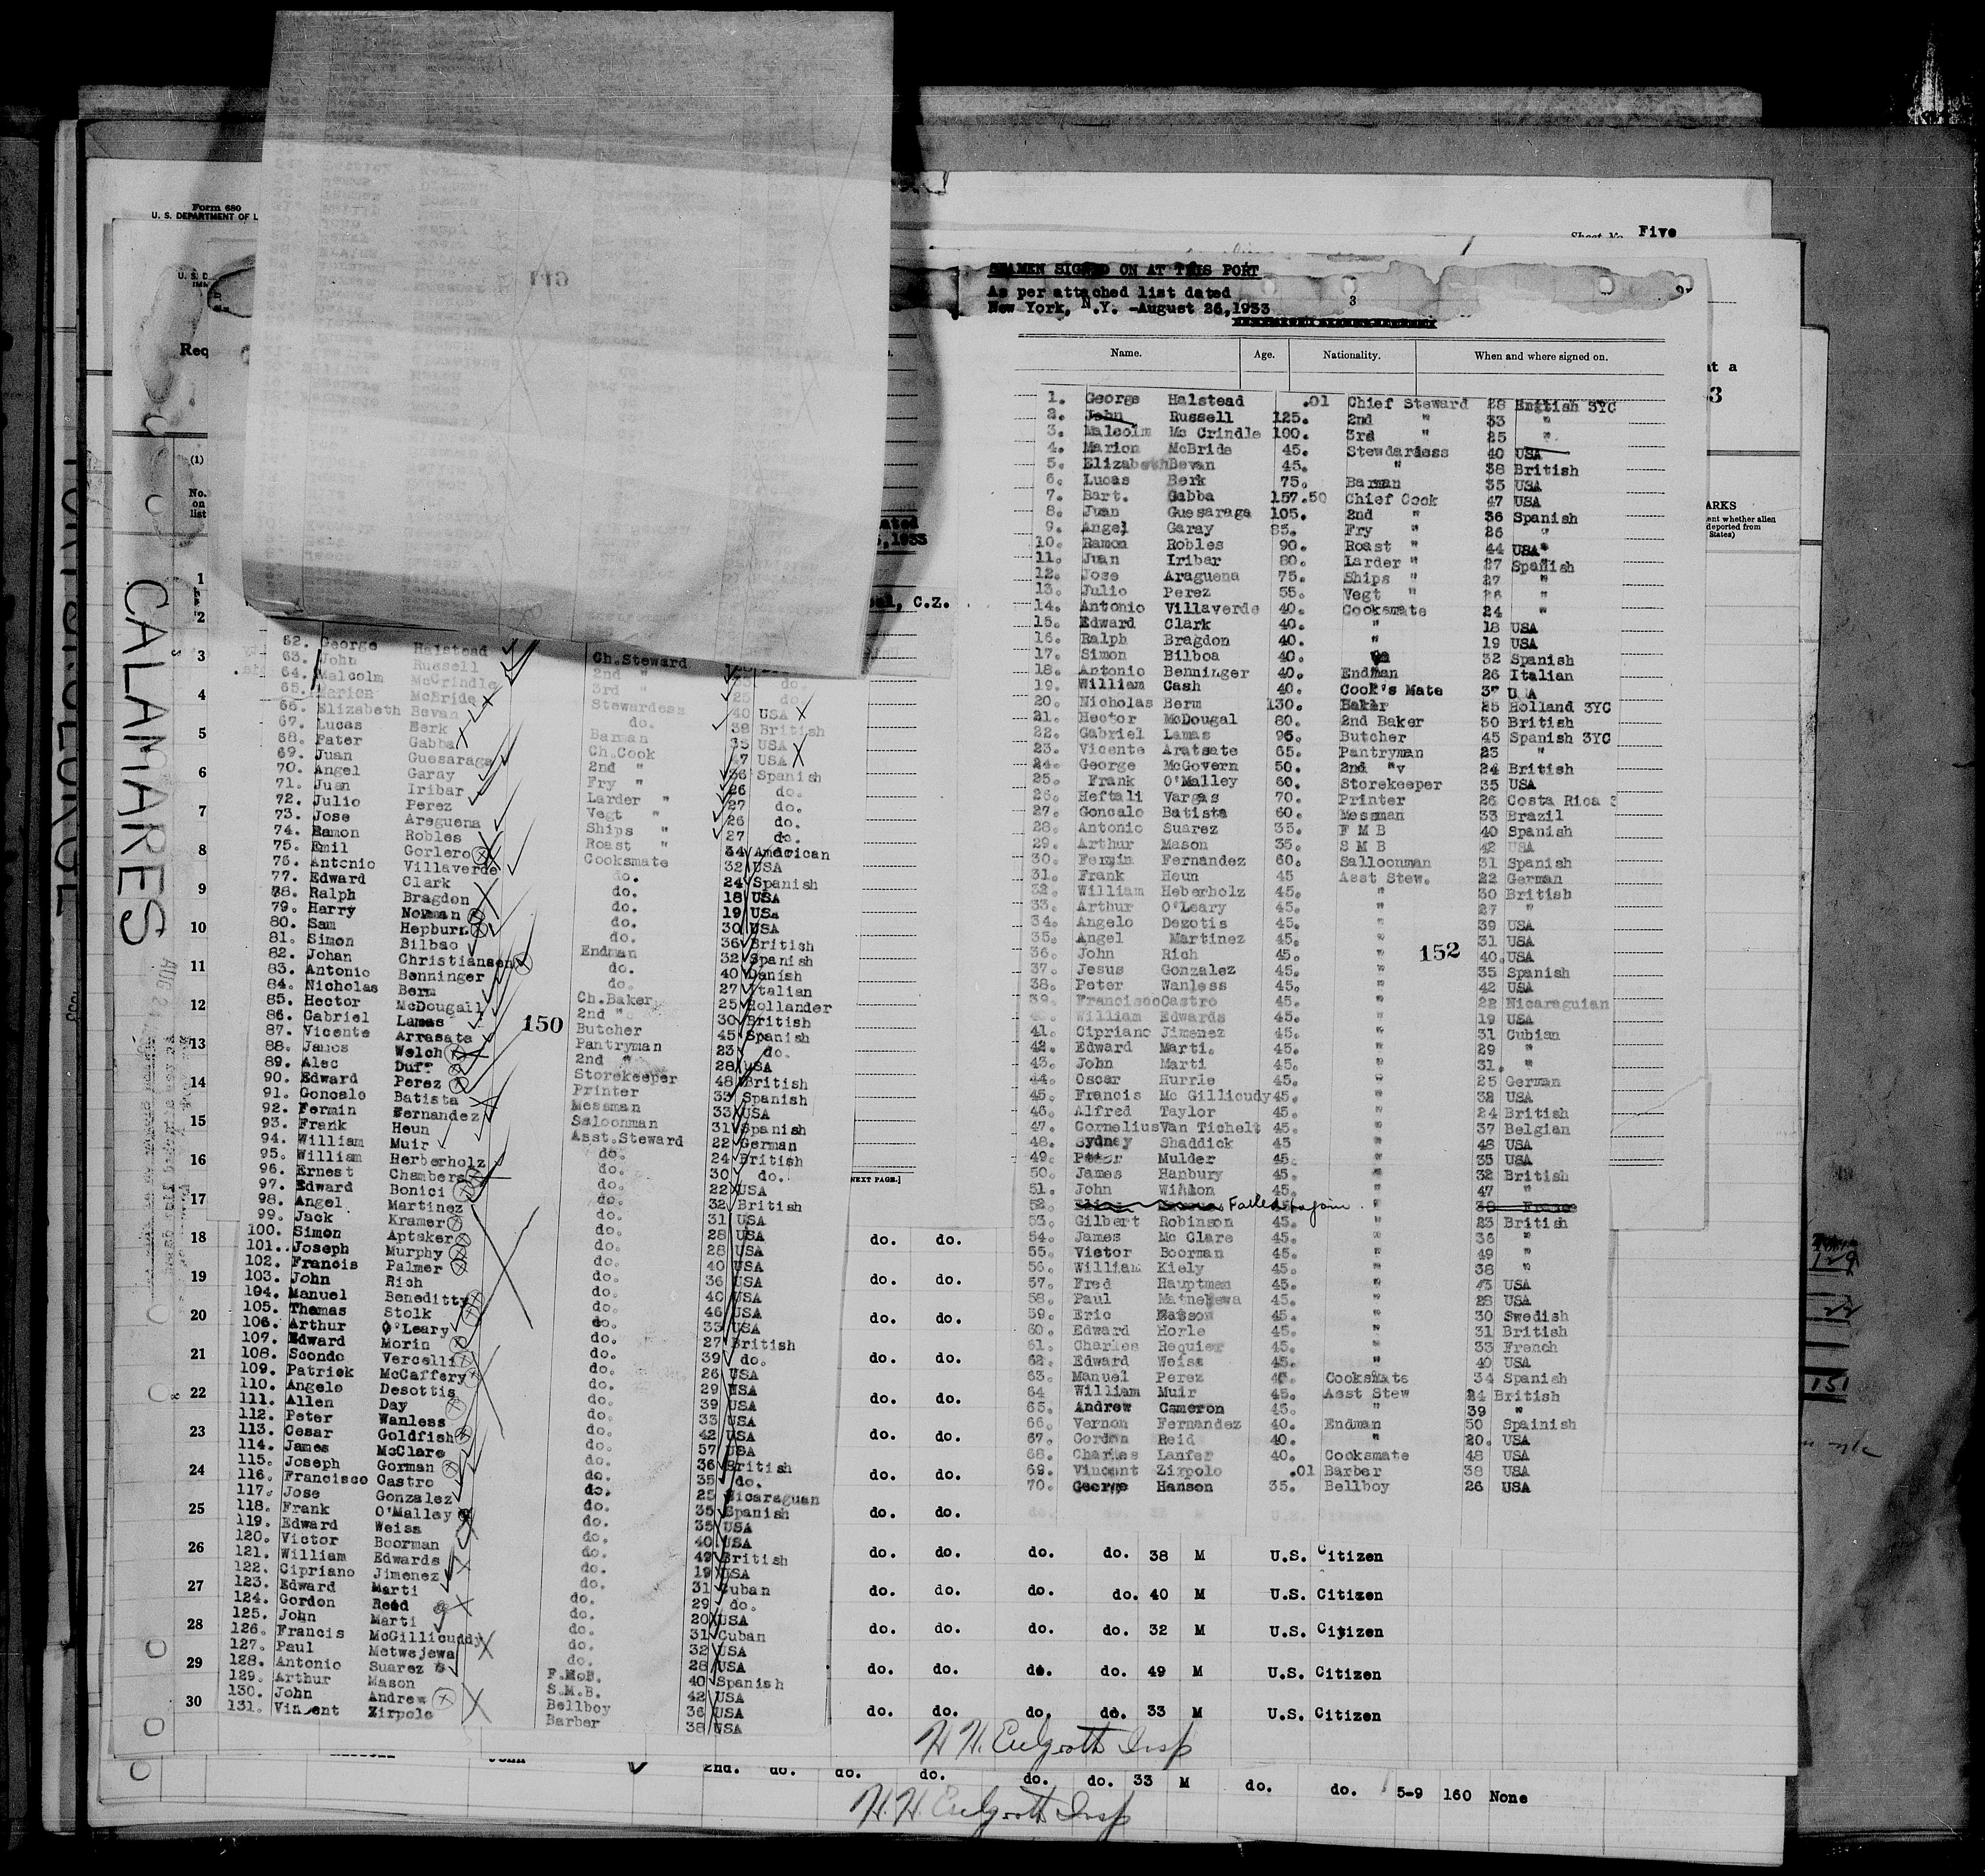 Form 680
U. S. DEPARTMENT OF L
Sheet No. Five
SEAMEN SIGNED ON AT THIS PORT
As per attached list dated
New York, N.Y. -August 26,1933
3
Name. Age. Nationality. When and where signed on.
1. George Halstead .01 Chief Steward 28 English 3YC
2. John Russell 125. 2nd " 33 "
3. Malcolm Mc Crindle 100. 3rd " 25 "
4. Marion McBride 45. Stewdardess 40 USA
5. Elizabeth Bevan 45. " 38 British
6. Lucas Berk 75. Barman 35 USA
7. Bart. Gabba 157.50 Chief Cook 47 USA
8. Juan Guesaraga 105. 2nd " 36 Spanish
9. Angel Garay 85. Fry " 26 "
10. Ramon Robles 90. Roast " 44 USA
11. Juan Iribar 80. Larder " 27 Spanish
12. Jose Araguena 75. Ships " 27 "
13. Julio Perez 55. Vegt " 26 "
14. Antonio Villaverde 40. Cooksmate 24 "
15. Edward Clark 40. " 18 USA
16. Ralph Bragdon 40. " 19 USA
17. Simon Bilboa 40. 32 Spanish
18. Antonio Benninger 40. Endman 26 Italian
19. William Cash 40. Cook's Mate 37 USA
20. Nicholas Berm 130. Baker 25 Holland 3YC
21. Hector McDougal 80. 2nd Baker 30 British
22. Gabriel Lamas 96. Butcher 45 Spanish 3YC
23. Vicente Aratsate 65. Pantryman 23 "
24. George McGovern 50. 2nd "v 24 British
25. Frank O'Malley 60. Storekeeper 35 USA
26. Heftali Vargas 70. Printer 26 Costa Rica
27. Goncalo Batista 60. Messman 33 Brazil
28. Antonio Suarez 35. F M B 40 Spanish
29. Arthur Mason 35. S M B 42 USA
30. Fermin Fernandez 60. Salloonman 31 Spanish
31. Frank Heun 45 Asst Stew. 22 German
32. William Heberholz 45. " 30 British
33. Arthur O'Leary 45. " 27 "
34. Angelo Dezotis 45. " 39 USA
35. Angel Martinez 45. " 31 USA
36. John Rich 45. " 40. USA
152
37. Jesus Gonzalez 45. " 35 Spanish
38. Peter Wanless 45. " 42 USA
39. Francisco Castro 45. " 22 Nicaraguian
40. William Edwards 45. " 19 USA
41. Cipriano Jimenez 45. " 31 Cubian
42. Edward Marti. 45. " 29 "
43. John Marti 45. " 31. "
44. Oscar Hurrle 45. " 25 German
45. Francis Mc Gillicudy 45. " 32 USA
46. Alfred Taylor 45. " 24 British
47. Cornelius Van Tichelt 45. " 37 Belgian
48. Sydney Shaddick 45 " 48 USA
49. Peter Mulder 45. " 35 USA
50. James Hanbury 45. " 32 British
51. John 45. " 47 "
52 Failed to join.
53. Gilbert Robinson 45. " 23 British
54. James Mc Clare 45. " 36 "
55. Victor Boorman 45. " 49 "
56. William Kiely 45. " 38 "
57. Fred Hauptman 45. " 43 USA
58. Paul 45. " 28 USA
59. Eric 45. " 30 Swedish
60. Edward Horle 45. " 31 British
61. Charles Requier 45. " 33 French
62. Edward Weiss 45. " 40 USA
63. Manuel Perez Cooksmate 34 Spanish
64 William Muir 45. Asst Stew 24 British
65. Andrew Cameron 45. " 39 "
66. Vernon Fernandez 40. Endman 50 Spainish
67. Gordon Reid 40. " 20. USA
68. Charles Lanfer 40. Cooksmate 48 USA
69. Vincent Zirpolo .01 Barber 38 USA
70. George Hanson 35. Bellboy 26 USA
CALAMARES
62. George Halstead Ch.Steward
63. John Russell 2nd " do.
64. Malcolm McCrindle 3rd " 25 do.
65. Marion McBride Stewardess 40 USA
66. Elizabeth Bevan do. 38 British
67. Lucas Berk Barman 35 USA
68. Pater Gabba Ch.Cook 47 USA
69. Juan Guesaraga 2nd " 36 Spanish
70. Angel Garay Fry " 26 do.
71. Juan Iribar Larder " 27 do.
72. Julio Perez Vegt " 26 do.
73. Jose Areguena Ships " 27 do.
74. Ramon Robles Roast " 44 American
75. Emil Gorlero Cooksmate 32 USA
76. Antonio Villaverde do. 24 Spanish
77. Edward Clark do. 18 USA
78. Ralph Bragdon do. 19 USA
79. Harry Newman do. 30 USA
80. Sam Hepburn do. 36 British
81. Simon Bilbao Endman 32 Spanish
82. Johan Christiansen do. 40 Danish
83. Antonio Benninger do. 27 Italian
84. Nicholas Berm Ch.Baker 25 Hollander
85. Hector McDougall 2nd " 30 British
86. Gabriel Lamas Butcher 45 Spanish
150
87. Vicente Arrasate Pantryman 23 do.
88. James Welch 2nd " 28 USA
89. Alec Duff Storekeeper 48 British
90. Edward Perez Printer 33 Spanish
91. Goncalo Batista Messman 33 USA
92. Fermin Fernandez Saloonman 31 Spanish
93. Frank Heun Asst.Steward 22 German
94. William Muir do. 24 British
95. William Herberholz do. 30 do.
96. Ernest Chambers do. 22 USA
97. Edward Bonici do. 32 British
98. Angel Martinez do. 31 USA
99. Jack Kramer do. 28 USA
100. Simon Aptaker do. 28 USA
101. Joseph Murphy do. 40 USA
102. Francis Palmer do. 36 USA
103. John Rich do. 40 USA
104. Manuel Beneditty do. 46 USA
105. Thomas Stolk do. 33 USA
106. Arthur O'Leary do. 27 British
107. Edward Morin do. 39 do.
108. Scondo Vercelli do. 26 USA
109. Patrick McCaffery do. 29 USA
110. Angelo Desottis do. 39 USA
111. Allen Day do. 33 USA
112. Peter Wanless do. 42 USA
113. Cesar Goldfish do. 57 USA
114. James McClare do. 36 British
115. Joseph Gorman do. 35 do.
116. Francisco Castro do. 25 Nicaraguan
117. Jose Gonzalez do. 35 Spanish
118. Frank O'Malley do. 35 USA
119. Edward Weiss do. 40 USA
120. Victor Boorman do. 49 British
121. William Edwards do. 19 USA
122. Cipriano Jimenez do. 31 Cuban
123. Edward Marti do. 29 do.
124. Gordon Reid do. 20 USA
125. John Marti do. 31 Cuban
126. Francis McGillicuddy do. 32 USA
127. Paul Metwejewa do. 28 USA
128. Antonio Suarez F.M.B. 40 Spanish
129. Arthur Mason S.M.B. 42 USA
130. John Andrew Bellboy 36 USA
131. Vincent Zirpolo Barber 38 USA
do. do.
do. do.
do. do.
do. do.
do. do.
do. do.
do. do.
do. do.
do. do. do. do. 38 M U.S. Citizen
do. do. do. do. 40 M U.S. Citizen
do. do. do. do. 32 M U.S. Citizen
do. do. do. do. 49 M U.S. Citizen
do. do. do. do. 33 M U.S. Citizen
2nd. do. do. do. do. do. 33 M do. do. 5-9 160 None